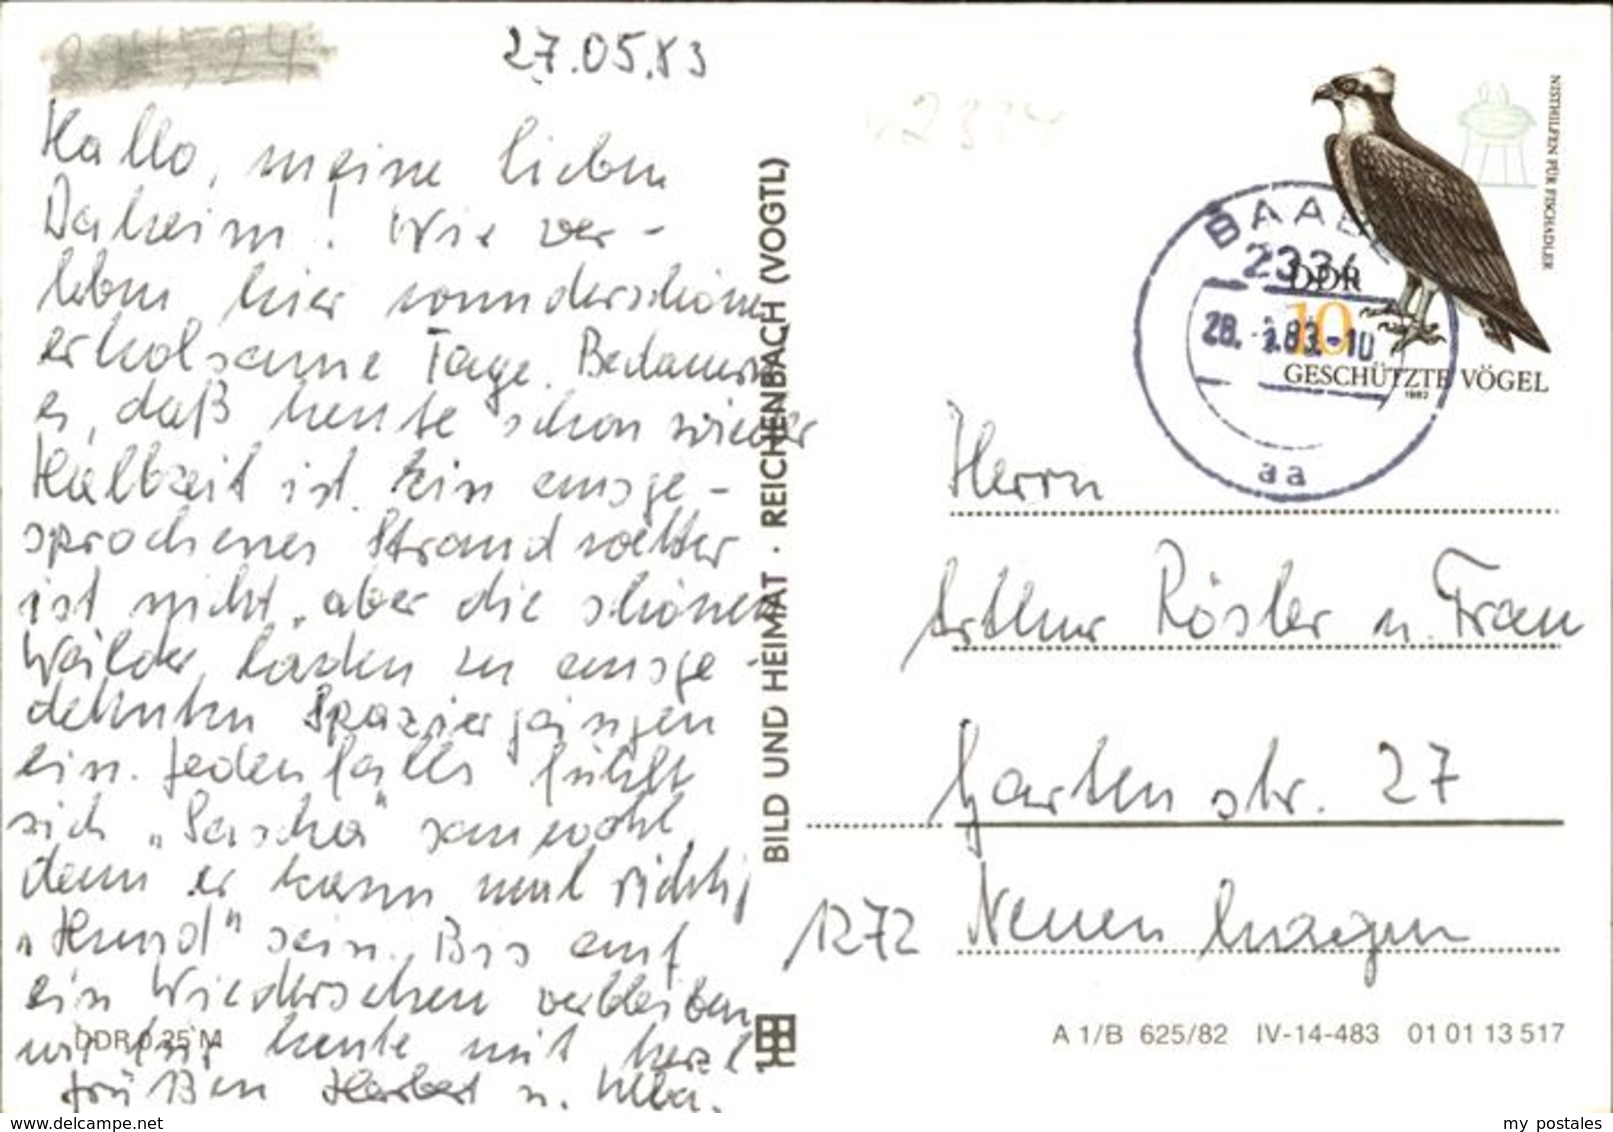 27.05.83
Hallo, meine lieben
Daheim! Wie ver-
leben hier wunderschöne
erholsame Tage. Bedauern
es, daß heute schon wieder
Halbzeit ist. Ein ausge-
sprochenes Strandwetter
ist nicht, aber die schönen
Wälder laden zu ausge-
dehnten Spaziergängen
ein. Jedenfalls fühlt
sich „Sascha" sauwohl,
denn er kann mal richtig
„Hund" sein. Bis auf
ein Wiedersehen verbleiben
wir für heute mit herzl.
Grüßen Herbert u.
DDR 0,25 M
BILD UND HEIMAT · REICHENBACH (VOGTL)
NISTHILFEN FÜR FISCHADLER
BAABE
2334
DDR
10
28. 5.83-10
GESCHÜTZTE VÖGEL
1982
aa
Herrn
Arthur Rösler u. Frau
Gartenstr. 27
1272 Neuenhagen
A 1/B 625/82 IV-14-483 01 01 13 517
www.delcampe.net
my_postales